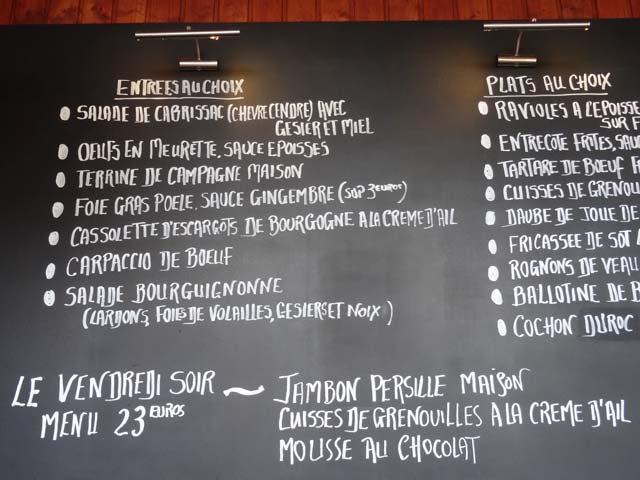 ENTREES AU CHOIX
SALADE DE CABRISSAC (CHEVRE CENDRE) AVEC
GESIER ET MIEL
OEUFS EN MEURETTE, SAUCE EPOISSES
TERRINE DE CAMPAGNE MAISON
FOIE GRAS POELE, SAUCE GINGEMBRE (SUP 3 EUROS)
CASSOLETTE D'ESCARGOTS DE BOURGOGNE A LA CREME D'AIL
CARPACCIO DE BOEUF
SALADE BOURGUIGNONNE
(LARDONS, FOIES DE VOLAILLES, GESIERS ET NOIX)
PLATS AU CHOIX
RAVIOLES A L'EPOISSE
SUR
ENTRECOTE FRITES,
TARTARE DE BOEUF
CUISSES DE
DAUBE DE JOUE DE
FRICASSEE DE
ROGNONS DE VEAU
BALLOTINE DE
COCHON DUROC
LE VENDREDI SOIR ~ JAMBON PERSILLE MAISON
MENU 23 EUROS CUISSES DE GRENOUILLES A LA CREME D'AIL
MOUSSE AU CHOCOLAT